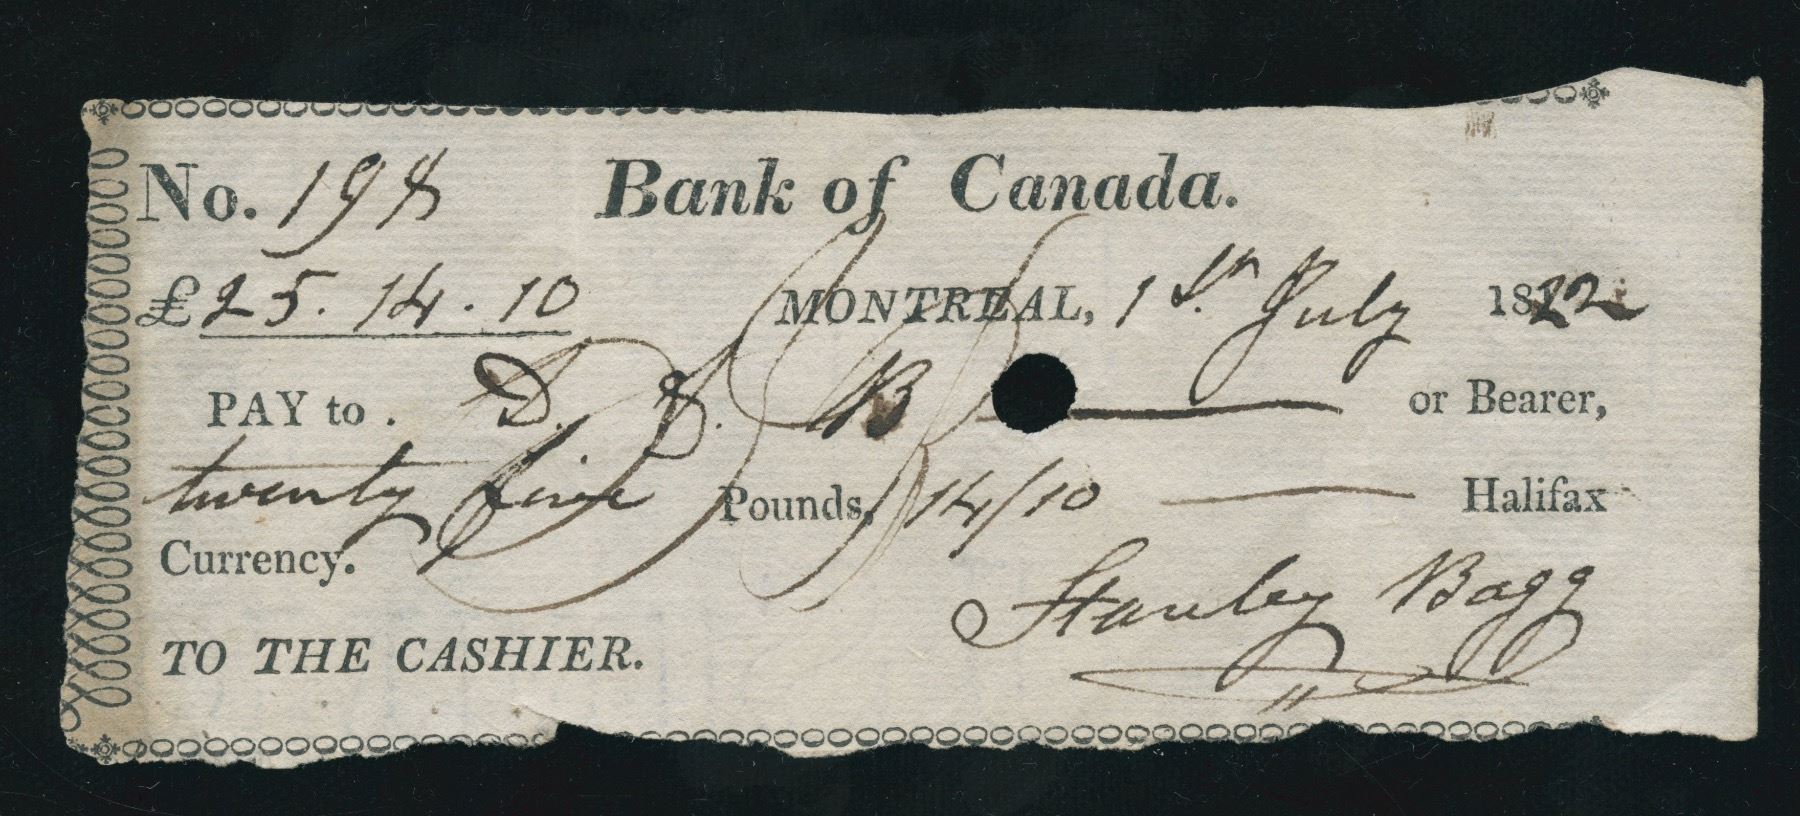 No. 198 Bank of Canada.
£25.14.10 MONTREAL, 1st. July 1822
PAY to. D. S. B or Bearer,
twenty five Pounds, 14/10 Halifax
Currency.
Stanley Bagg
TO THE CASHIER.